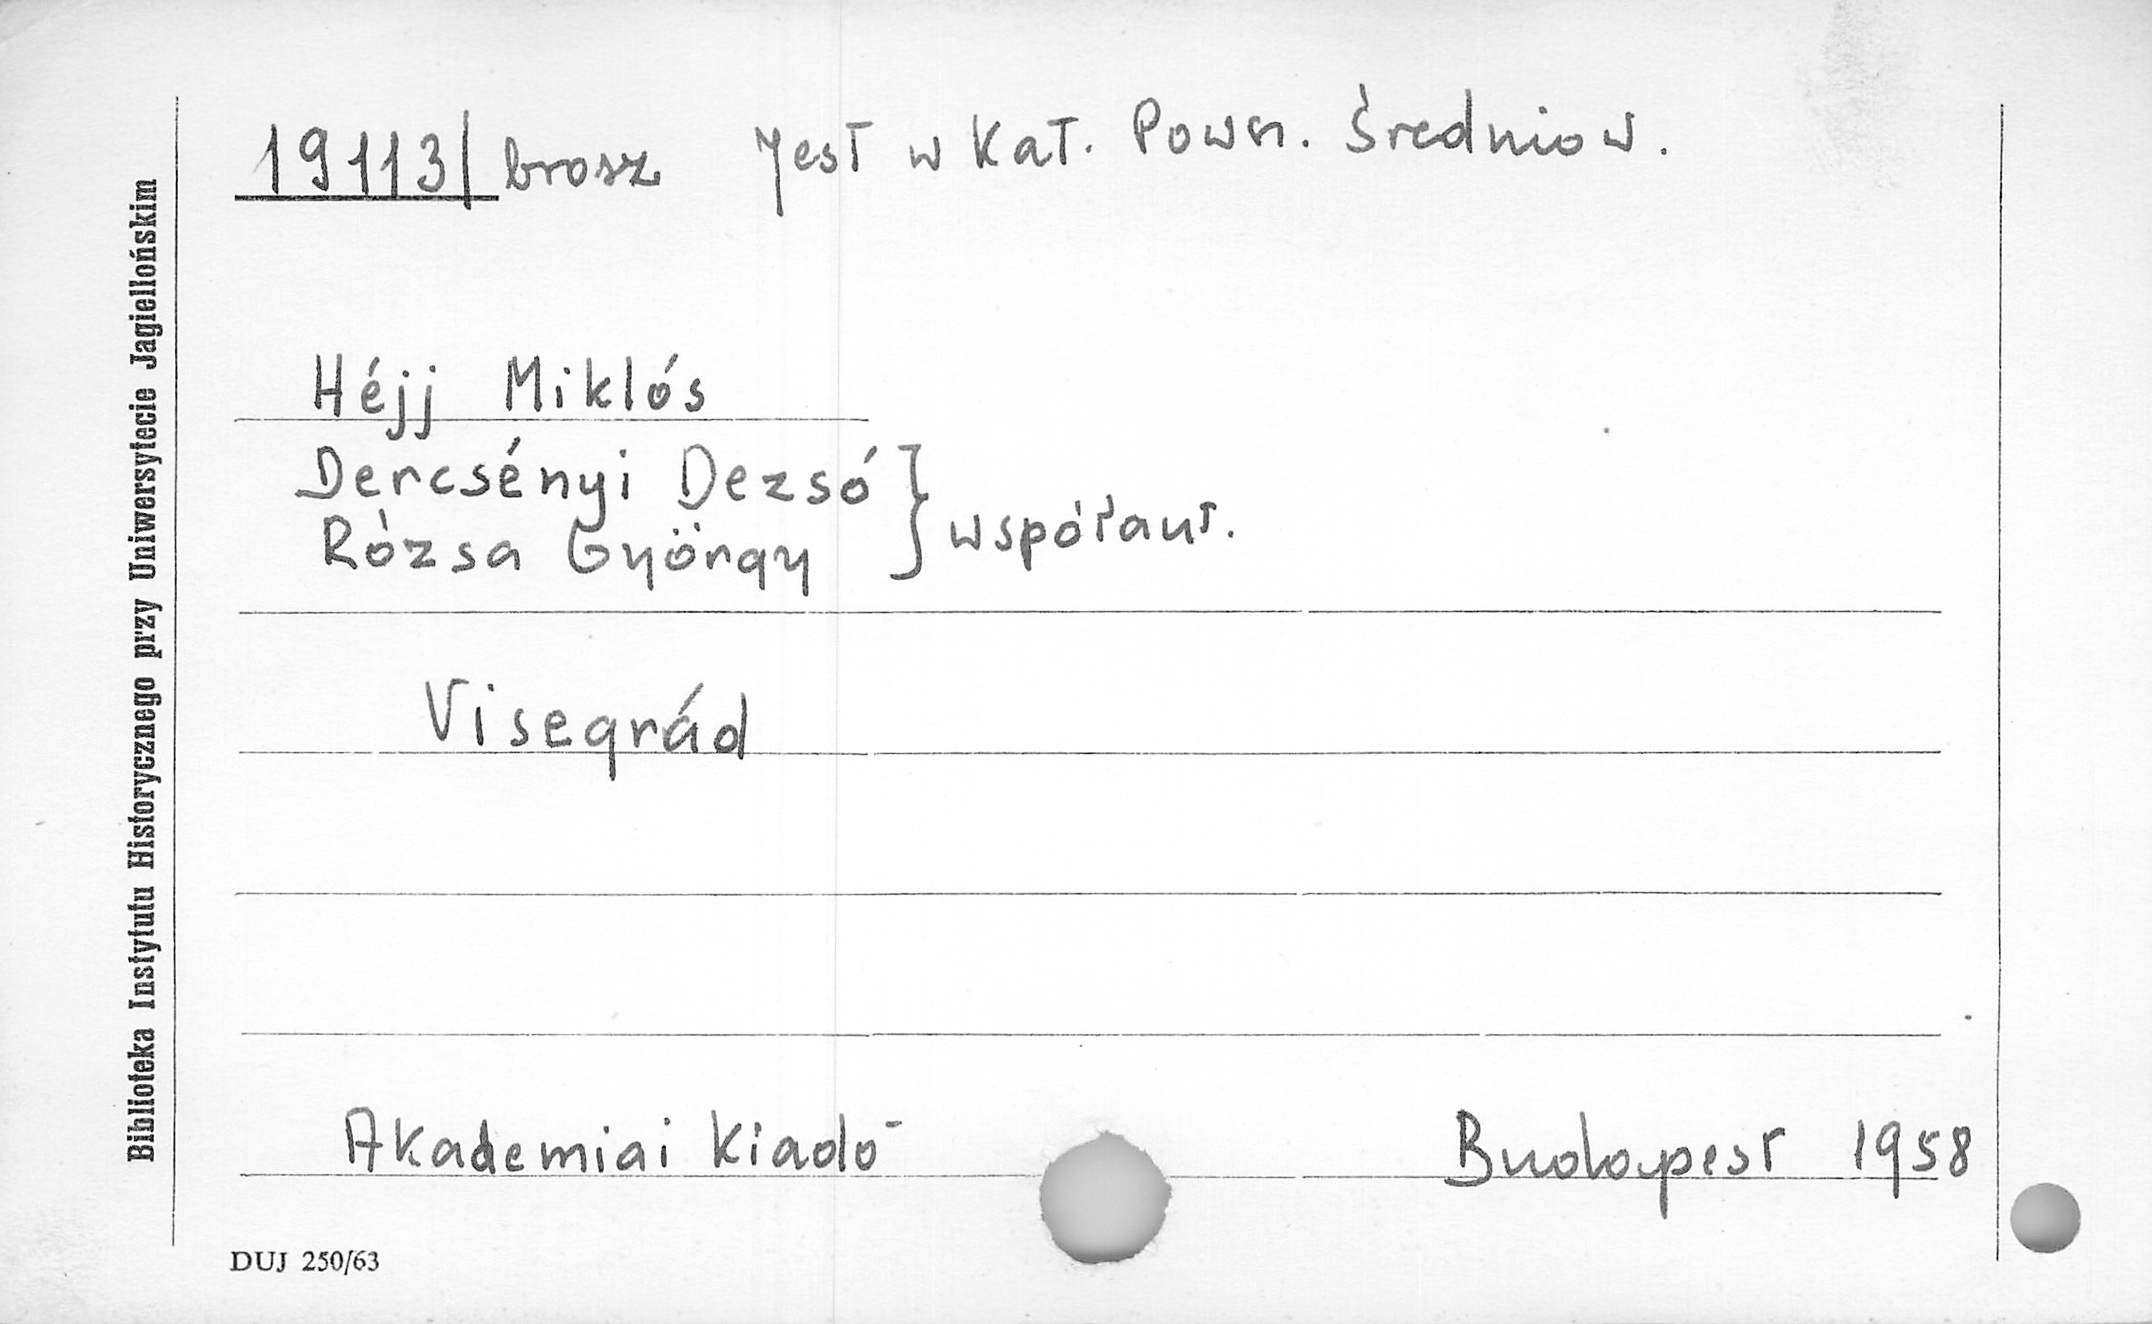 19113/ brosz Jest w Kat. Pows. Średniow.
Héjj Miklós
Dercsényi Dezsó } współaut.
Rózsa György
Visegrád
Akademiai Kiadó Budapest 1958
DUJ 250/63
Biblioteka Instytutu Historycznego przy Uniwersytecie Jagiellońskim